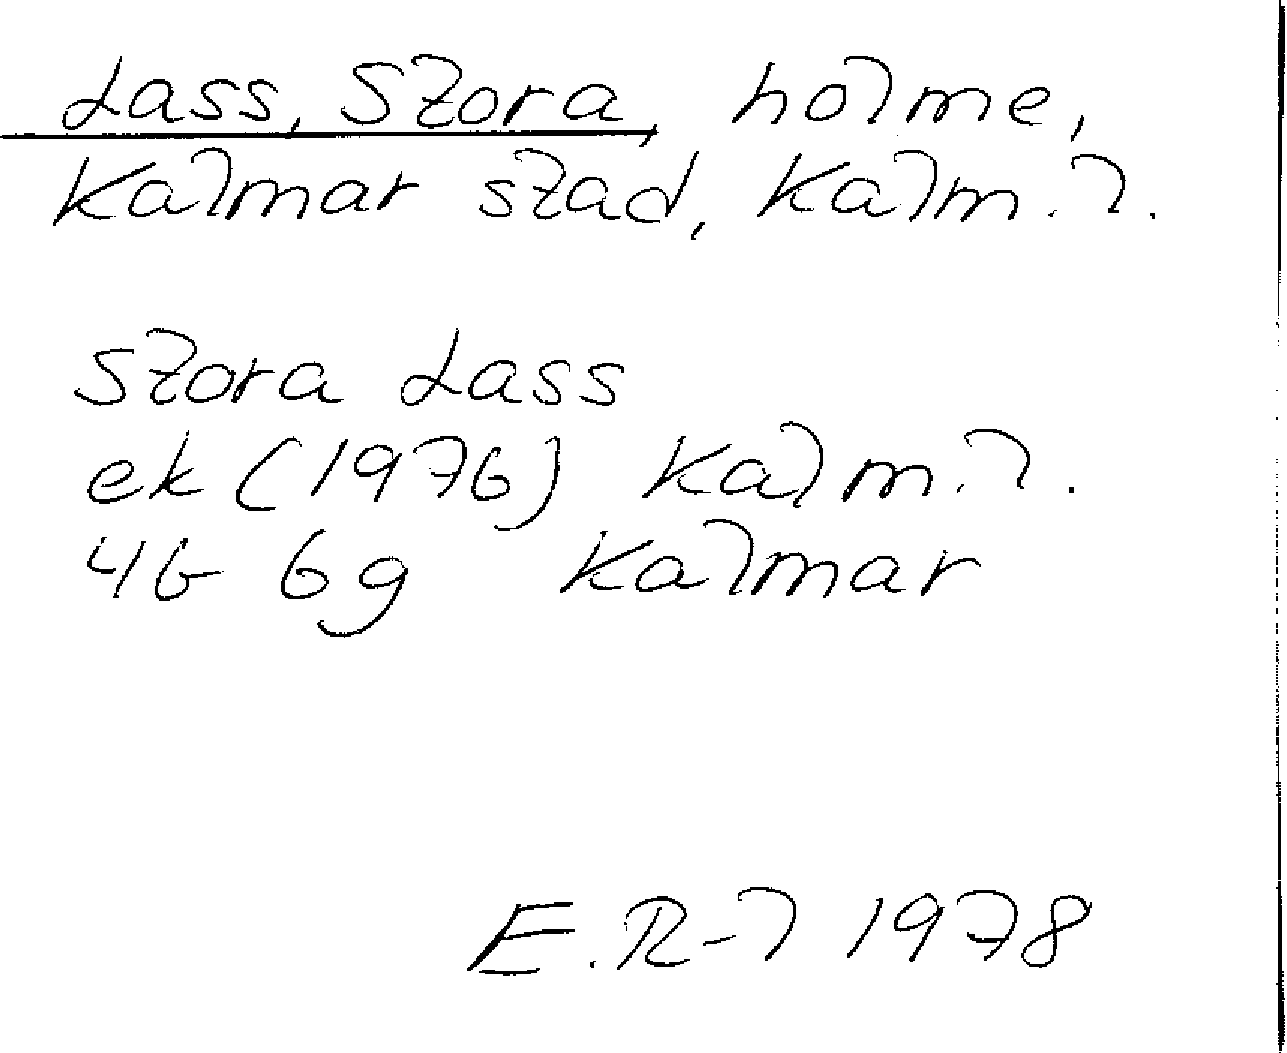 Lass, Stora, holme,
Kalmar stad, Kalm. l.
Stora Lass
ek (1976) Kalm. l.
4G 6g Kalmar
E. R-l 1978